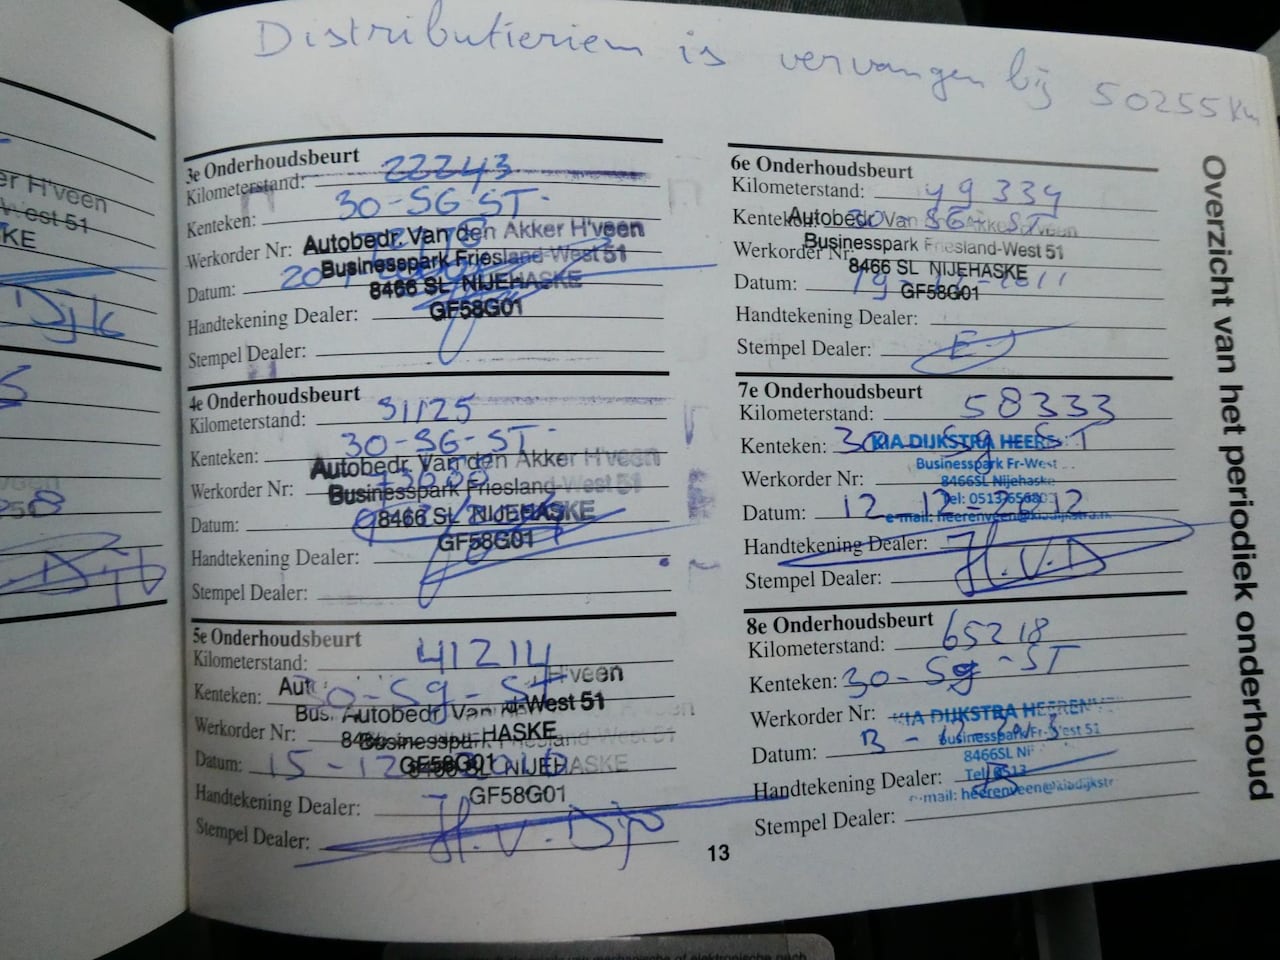 Distributieriem is vervangen bij 50255 km
Overzicht van het periodiek onderhoud
er H'veen
West 51
KE
Dijk
3e Onderhoudsbeurt
Kilometerstand: 22243
Kenteken: 30-SG-ST-
Werkorder Nr:
Autobedr. Van den Akker H'veen
Businesspark Friesland-West 51
Datum: 20
8466 SL NIJEHASKE
GF58G01
Handtekening Dealer:
Stempel Dealer:
4e Onderhoudsbeurt
Kilometerstand: 31125
Kenteken: 30-SG-ST-
Autobedr. Van den Akker H'veen
Werkorder Nr:
Businesspark Friesland-West 51
Datum:
8466 SL NIJEHASKE
GF58G01
Handtekening Dealer:
Stempel Dealer:
5e Onderhoudsbeurt
Kilometerstand: 41214
H'veen
Kenteken: 30-Sg-ST
Aut
Bus. Autobedr. Van d-West 51
Werkorder Nr:
HASKE
Businesspark Friesland-West 51
Datum: 15-12
GF58G01
8466 SL NIJEHASKE
GF58G01
Handtekening Dealer:
Stempel Dealer: H.v. Dijk
6e Onderhoudsbeurt
Kilometerstand: 49334
Kenteken: 30-SG-ST
Autobedr. Van den Akker H'veen
Werkorder Nr:
Businesspark Friesland-West 51
8466 SL NIJEHASKE
Datum: 19 2011
GF58G01
Handtekening Dealer:
Stempel Dealer:
7e Onderhoudsbeurt
Kilometerstand: 58333
Kenteken: 30-Sg-ST
KIA DIJKSTRA HEER
Businesspark Fr-West
Werkorder Nr:
8466SL Nijehaske
Tel: 0513
Datum: 12-12-2012
e-mail: heerenveen@kiadijkstra.n
Handtekening Dealer: H.V.D
Stempel Dealer:
8e Onderhoudsbeurt
Kilometerstand: 65218
Kenteken: 30-Sg-ST
Werkorder Nr:
KIA DIJKSTRA HEERENV
Businesspark Fr-West 51
Datum:
8466SL Ni
Tel 0513
Handtekening Dealer:
e-mail: heerenveen@kiadijkstr
Stempel Dealer:
13